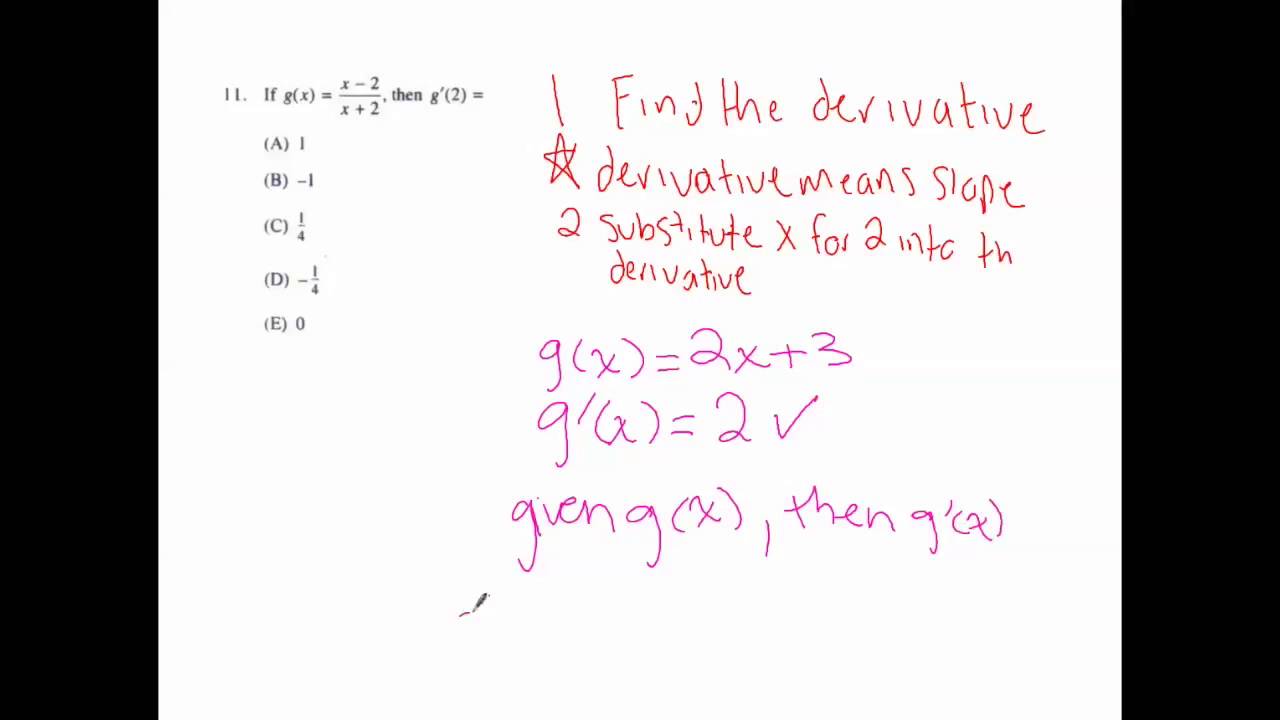 11. If g(x) = x − 2 / x + 2, then g′(2) =
(A) 1
(B) −1
(C) 1/4
(D) −1/4
(E) 0
1 Find the derivative
☆ derivative means slope
2 substitute x for 2 into th
derivative
g(x) = 2x + 3
g′(x) = 2 ✓
given g(x), then g′(x)